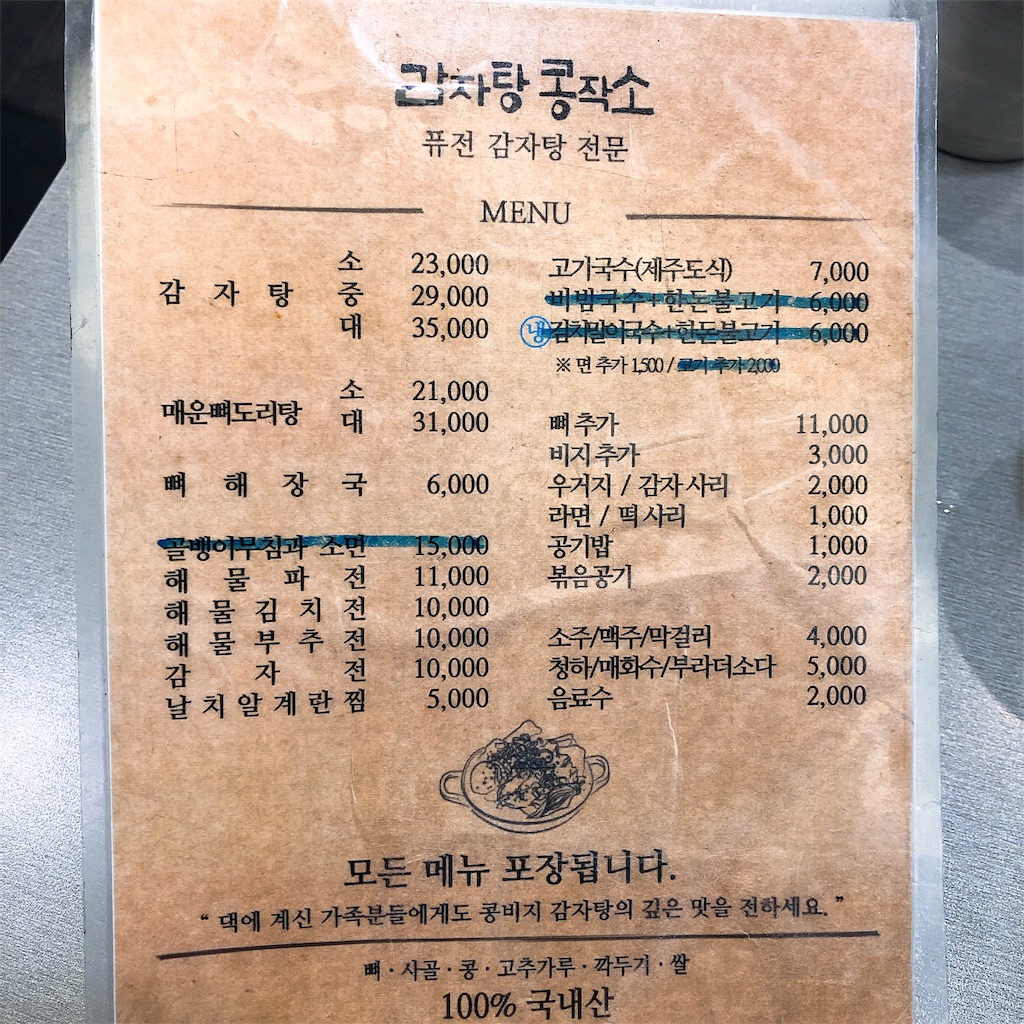 감자탕 콩작소
퓨전 감자탕 전문
MENU
감자탕 소 23,000
중 29,000
대 35,000
매운뼈도리탕 소 21,000
대 31,000
뼈해장국 6,000
골뱅이무침과 소면 15,000
해물파전 11,000
해물김치전 10,000
해물부추전 10,000
감자전 10,000
날치알계란찜 5,000
고기국수(제주도식) 7,000
비빔국수+한돈불고기 6,000
냉 김치말이국수+한돈불고기 6,000
※ 면 추가 1,500 / 고기 추가 2,000
뼈 추가 11,000
비지 추가 3,000
우거지 / 감자 사리 2,000
라면 / 떡 사리 1,000
공기밥 1,000
볶음공기 2,000
소주/맥주/막걸리 4,000
청하/매화수/부라더소다 5,000
음료수 2,000
모든 메뉴 포장됩니다.
“ 댁에 계신 가족분들에게도 콩비지 감자탕의 깊은 맛을 전하세요. ”
뼈 · 사골 · 콩 · 고추가루 · 깍두기 · 쌀
100% 국내산